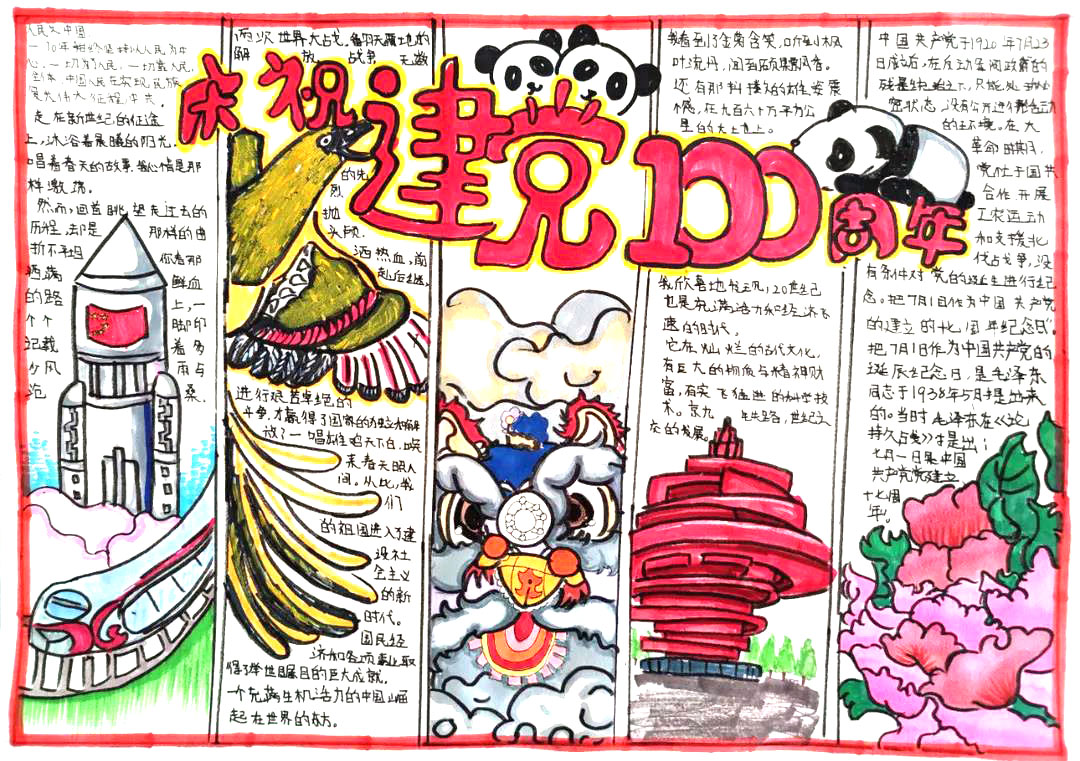 庆祝建党100周年
人民为中国
心,一切为了人民,一切靠人民,
走在新世纪的征途
上,沐浴着晨曦的阳光,
唱着春天的故事,我心情是那
样激荡。
然而,回首眺望走过的
历程,却是那样的曲
折不平坦
洒满鲜血
的路上,一
个个脚印
记载着多
少风雨与
沧桑
两次世界大战,翻天覆地的
解放战争,无数
的先
烈
抛
头颅
洒热血,前
赴后继,
进行艰苦卓绝的
斗争,才赢得了国家的独立和解
放了一唱雄鸡天下白,唤
来春天明人
间。从此,我
们
的祖国进入了建
设社
会主义
的新
时代。
国民经
济和各项事业取
得了举世瞩目的巨大成就。
一个充满生机活力的中国崛
起在世界的东方。
还有那
感,在九百六十万平方公
里的大土地上。
我欣喜地发现,20世纪
也是充满活力和经济飞
速的时代。
它有灿烂的古代文化,
有巨大的物质与精神财
富,有突飞猛进的科学技
术。京九
在的发展
中国共产党于1920年7月23
日成立后,在反动军阀政府的
残暴统治之下,只能处于秘
密状态,没有公开进行群众活动
的环境。在大
革命时期,
党忙于国共
合作、开展
工农运动
和支援北
伐战争,没
有条件对党的诞生进行纪
念。把7月1日作为中国共产党
的建立的十七周年纪念日。
把7月1日作为中国共产党的
诞辰纪念日,是毛泽东
同志于1938年5月提出来
的。当时毛泽东在《论
持久战》中提出:
七月一日是中国
共产党建立
十七周
年。